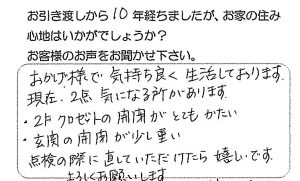 お引き渡しから10年経ちましたが、お家の住み
心地はいかがでしょうか？
お客様のお声をお聞かせ下さい。
おかげ様で気持ち良く生活しております。
現在、2点気になる所があります。
・2F クロゼットの開閉がとてもかたい
・玄関の開閉が少し重い
点検の際に直していただけたら嬉しいです。
よろしくお願いします